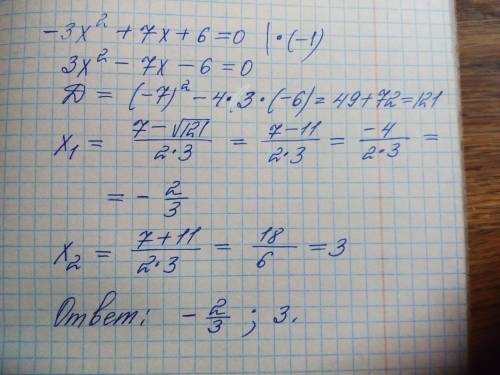 -3x² + 7x + 6 = 0 | · (-1)
3x² - 7x - 6 = 0
D = (-7)² - 4 · 3 · (-6) = 49 + 72 = 121
x₁ = (7 - √121)/(2·3) = (7 - 11)/(2·3) = (-4)/(2·3) =
= - 2/3
x₂ = (7 + 11)/(2·3) = 18/6 = 3
Ответ: - 2/3 ; 3.